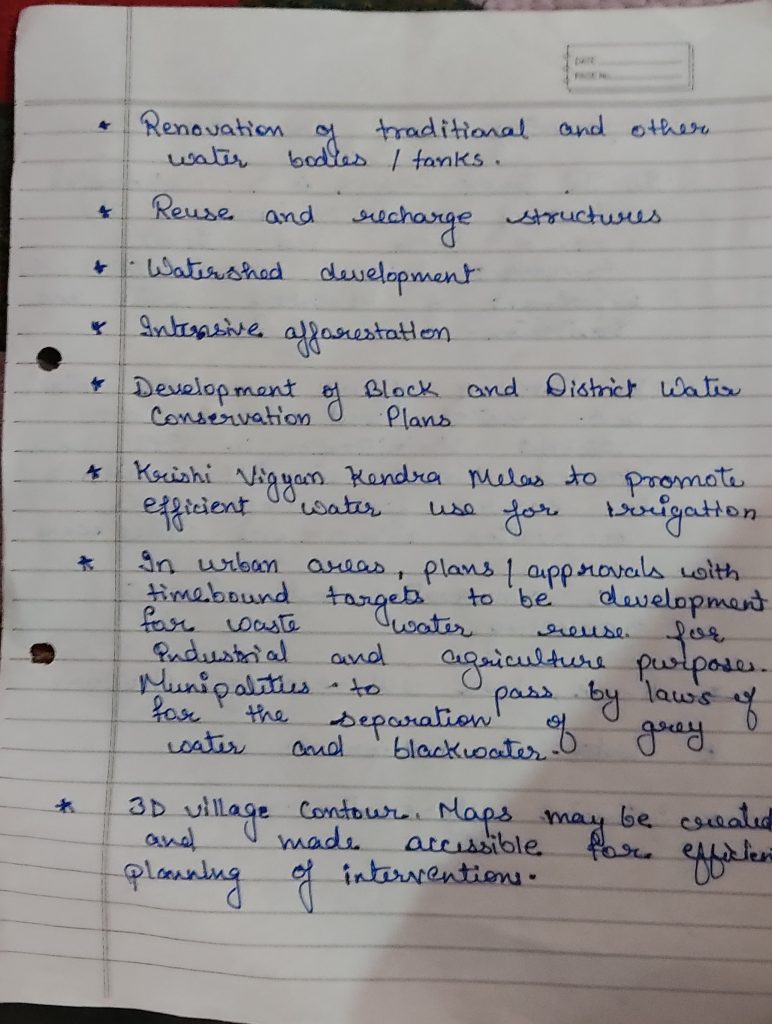 DATE
PAGE No.
* Renovation of traditional and other
water bodies / tanks.
* Reuse and recharge structures
* Watershed development
* Intensive afforestation
* Development of Block and District Water
Conservation Plans
* Krishi Vigyan Kendra Melas to promote
efficient water use for irrigation
* In urban areas, plans / approvals with
timebound targets to be development
for waste water reuse for
Industrial and agriculture purpose.
Munipalities to pass by laws of
for the separation of grey
water and blackwater.
* 3D village contour. Maps may be created
and made accessible for efficien
planning of interventions.